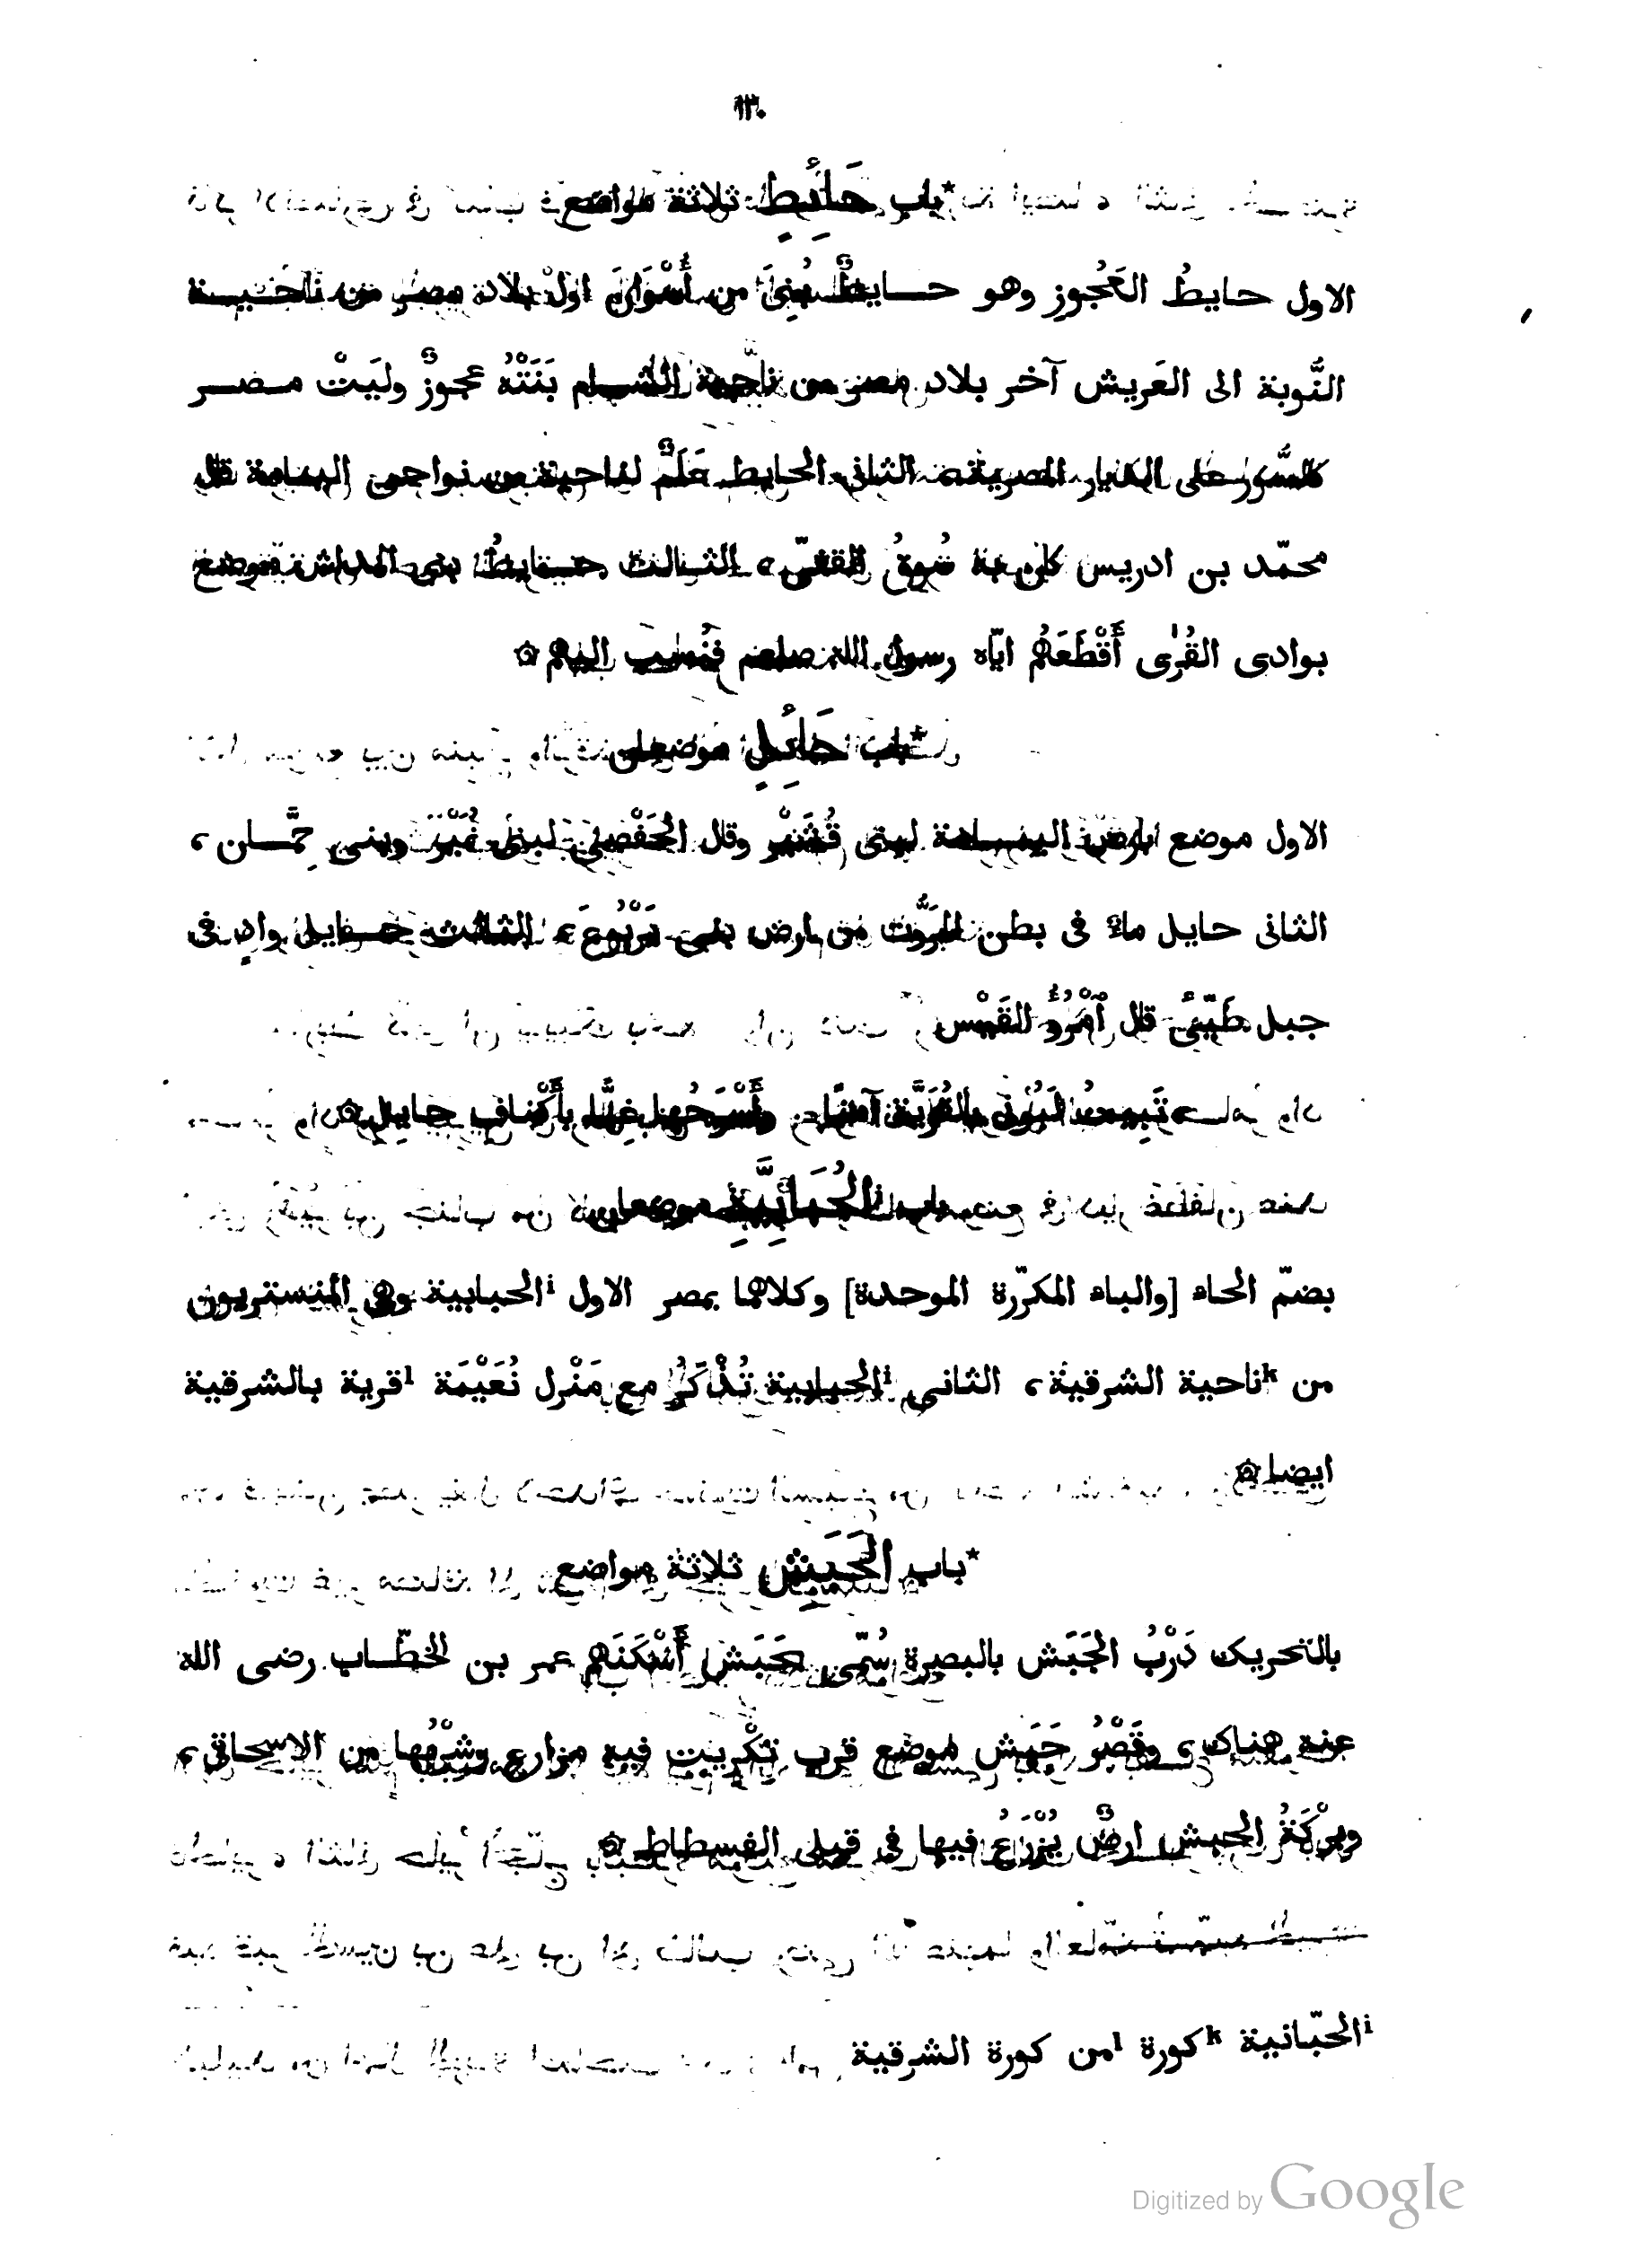 ١٣٠
*باب حَائِطٍ ثلاثة مواضع
الاول حايطُ العَجُوزِ وهو حــايطٌ بُنِىَ من أُسْوَانَ اوّل بلاد مصر من ناحيــة
النُّوبة الى العَريش آخر بلاد مصر من ناحية الشــام بَنَتْهُ عجوزٌ ولَيَتْ مــصــر
كالسُّور على الديار المصرية، الثانى الحايط عَلَمٌ لناحية من نواحى اليمامة قال
محمّد بن ادريس كان به سُوقُ الفَقِىّ، الثــالث حــايطُ بنى المداش موضع
بوادى القُرٰى أَقْطَعَهُم ايّاه رسول الله صلعم فنُسب اليهم ۞
*باب حَائِلٍ موضعان
الاول موضع بارض اليمــامة لبنى قُشَيْر وقال الحَفْصِىّ لبنى نُمَيْر وبنى حِمَّــان،
الثانى حايل ماءٌ فى بطن المَرُّوت من ارض بنى يَرْبُوعَ، الثالث حــايل وادٍ فى
جبل طَيِّىً قال آمْرُؤُ القَيْس
تَبِيتُ لَبُونِى بالقُرَيَّة أُمَّنًا وأَسْرَحُها غِبًّا بأَكْنافِ حايلِ ۞
باب الحُبَابِيَّةِ موضعان
بضمّ الحاء [والباء المكرّرة الموحدة] وكلاهما بمصر الاول ⁱالحبابية وهى المنستريون
من ᵏناحية الشرقية، الثانى ⁱالحبابية تُذْكَرُ مع مَنْزل نُعَيْمَة ˡقرية بالشرقية
ايضا ۞
*باب الحَبَشِ ثلاثة مواضع
بالتحريك دَرْبُ الحَبَش بالبصرة سُمّى بحَبَش أَسْكَنَهم عمر بن الخطّــاب رضى الله
عنه هناك، وقَصْرُ حَبَش موضع قرب تكْرِيت فيه مزارع وشُرْبُها من الاسحاقى،
وبِرْكَةُ الحبش ارضٌ يُزْرَعُ فيها فى قبلى الفسطاط ۞
ⁱالحبّانية ᵏكورة ˡمن كورة الشرقية
Digitized by Google